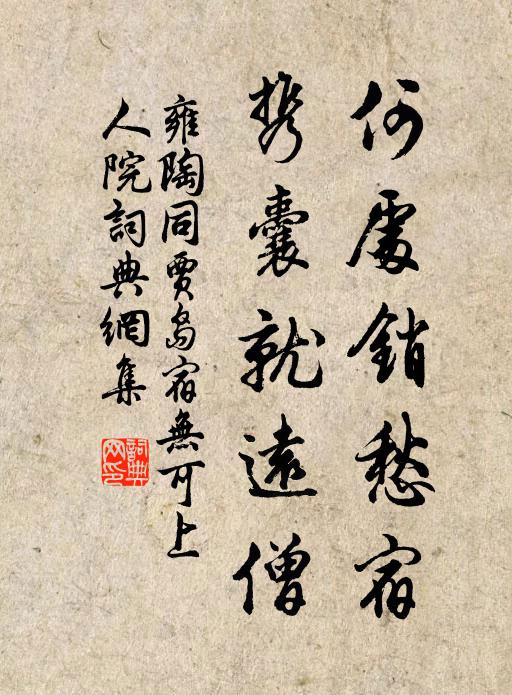 何處銷愁宿
攜囊就遠僧
雍陶同賈島宿無可上
人院詞典網集
詞典網印